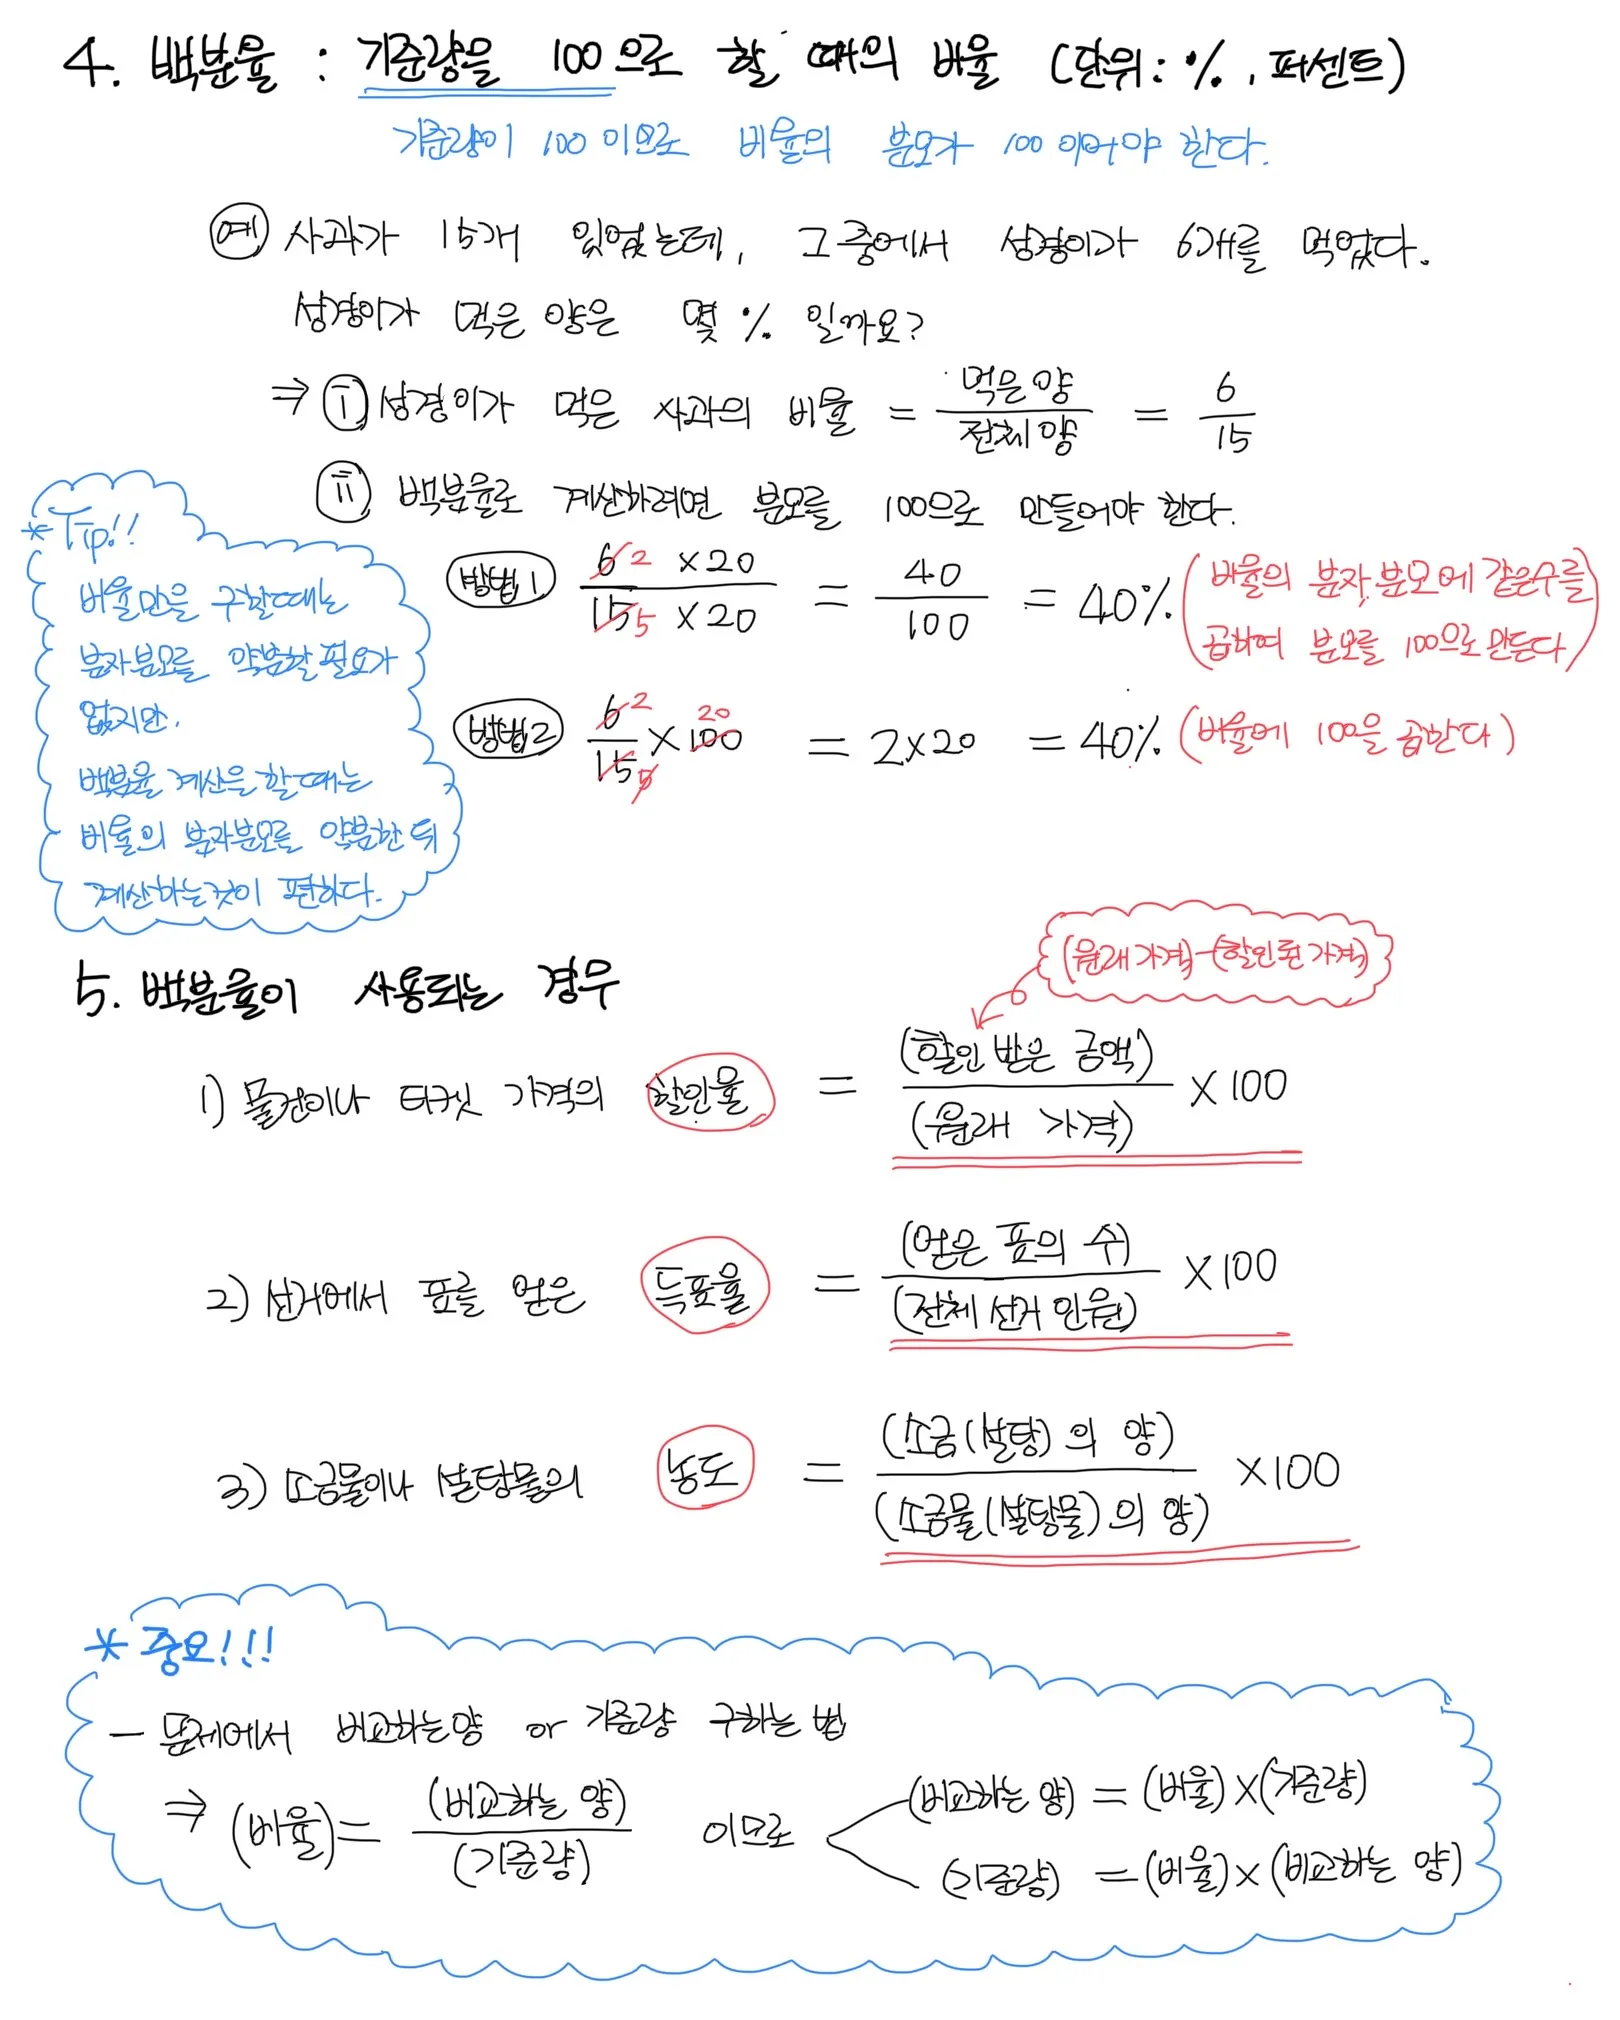 4. 백분율 : 기준량을 100으로 할 때의 비율 (단위: %, 퍼센트)
기준량이 100 이므로 비율의 분모가 100 이어야 한다.
예 사과가 15개 있었는데, 그 중에서 성경이가 6개를 먹었다.
성경이가 먹은 양은 몇 % 일까요?
⇒ ⅰ 성경이가 먹은 사과의 비율 = 먹은 양 / 전체 양 = 6 / 15
ⅱ 백분율로 계산하려면 분모를 100으로 만들어야 한다.
방법1 6 2 ×20 / 15 5 ×20 = 40 / 100 = 40% (비율의 분자, 분모에 같은수를
곱하여 분모를 100으로 만든다)
방법2 6 2 / 15 5 × 100 20 = 2×20 = 40% (비율에 100을 곱한다)
* Tip!!
비율만을 구할때는
분자분모를 약분할 필요가
없지만,
백분율 계산을 할때는
비율의 분자분모를 약분한 뒤
계산하는것이 편하다.
5. 백분율이 사용되는 경우
(원래 가격)-(할인된 가격)
1) 물건이나 티켓 가격의 할인율 = (할인 받은 금액) / (원래 가격) ×100
2) 선거에서 표를 얻은 득표율 = (얻은 표의 수) / (전체 선거 인원) ×100
3) 소금물이나 설탕물의 농도 = (소금(설탕)의 양) / (소금물(설탕물)의 양) ×100
* 중요!!!
- 문제에서 비교하는양 or 기준량 구하는 법
⇒ (비율) = (비교하는 양) / (기준량) 이므로 (비교하는 양) = (비율)×(기준량)
(기준량) = (비율)×(비교하는 양)